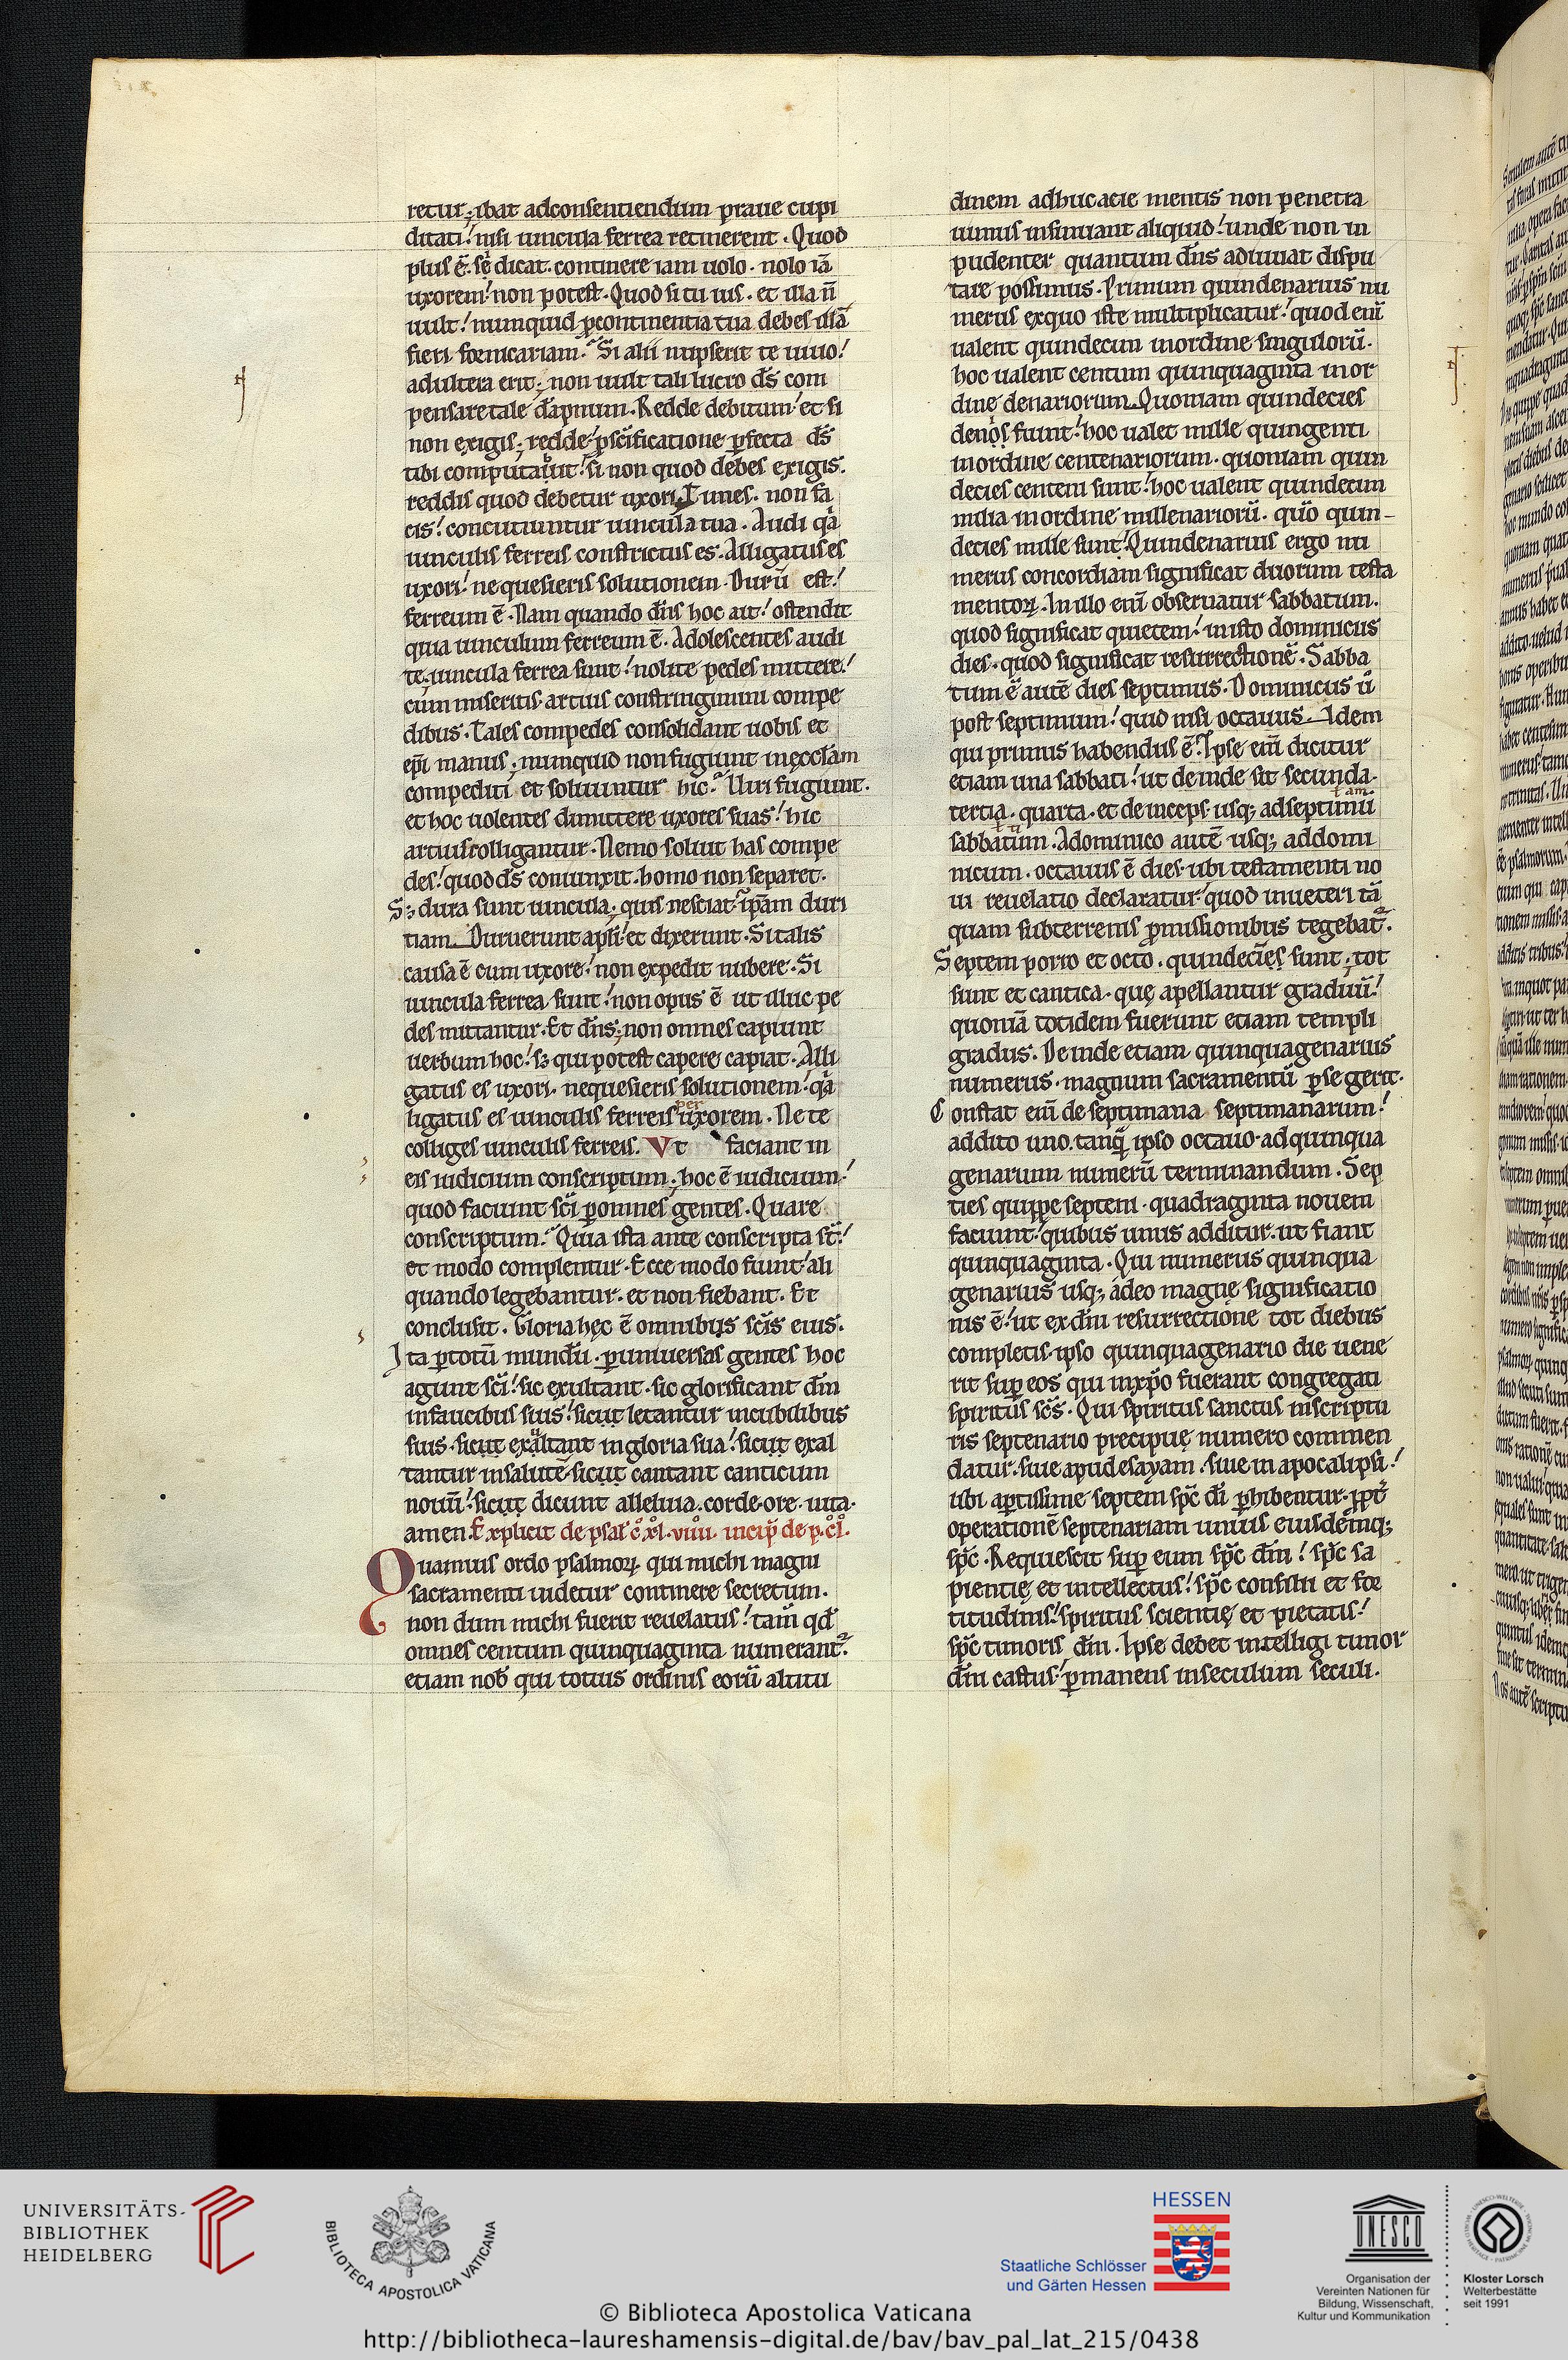 retur; ibat adconsentiendum praue cupi
ditati! nisi uincula ferrea retinerent. Quod
plus ē. sẹ dicat. continere iam uolo. nolo iā
uxorem! non potest. Quod si tu uis. et illa ñ
uult! nunquid ꝓcontinentia tua debes illā
fieri fornicariam? Si alii nupserit te uiuo!
adultera erit; non uult tali lucro d̄s com
pensare tale dāpnum. Redde debitum! et si
non exigis; redde! ꝓ sc̄ificatione ꝑfecta d̄s
tibi computabit! si non quod debes exigis.
reddis quod debetur uxori. Times. non fa
cis! concutiuntur uincula tua. Audi qͣa
uinculis ferreis constrictus es. Alligatus es
uxori! ne quesieris solutionem. Durū est!
ferreum ē. Nam quando dn̄s hoc ait! ostendit
quia uinculum ferreum ē. Adolescentes audi
te; uincula ferrea sunt! nolite pedes mittere!
cum miseritis. artius constringimini compe
dibus. Tales compedes consolidant uobis et
ep̄i manus; numquid non fugiunt inęccl̄am
compediti et soluuntur hic? Uiri fugiunt.
et hoc uolentes dimittere uxores suas! hic
artius colligantur. Nemo soluit has compe
des! quod d̄s coniunxit. homo non separet.
Sꝫ dura sunt uincula; quis nesciat? ip̄am duri
tiam. Duruerunt apl̄i! et dixerunt. Si talis
causa ē cum uxore! non expedit nubere. Si
uincula ferrea sunt! non opus ē ut illuc pe
des mittantur. Et dn̄s; non omnes capiunt
uerbum hoc! sꝫ qui potest capere capiat. Alli
gatus es uxori. nequesieris solutionem! qͣa
ligatus es uinculis ferreis per uxorem. Ne te
colliges uinculis ferreis. Vt faciant in
eis iudicium conscriptum; hoc ē iudicium!
quod faciunt sc̄i ꝑ omnes gentes. Quare
conscriptum? Quia ista ante conscripta st̄!
et modo complentur. Ecce modo fiunt! ali
quando legebantur. et non fiebant. Et
conclusit. Gloria hęc ē omnibus sc̄is eius.
Ita ꝑ totū mundū. ꝑ uniuersas gentes hoc
agunt sc̄i! sic exultant. sic glorificant dm̄
infaucibus suis! sicut letantur incubilibus
suis. sicut exultant ingloria sua! sicut exal
tantur insalutē! sicut cantant canticum
nouū! sicut dicunt alleluia. corde. ore. uita.
amen. Explicit de psal̄ c̊.xl. viiii. incip̄ de p. c̊l.
Quamuis ordo psalmoꝝ qui michi magni
sacramenti uidetur continere secretum.
non dum michi fuerit reuelatus! tam̄ qd̄
omnes centum quinquaginta numerant᷑.
etiam nob̄ qui totius ordinis eorū altitu
dinem adhuc acie mentis non penetra
uimus insinuant aliquid! unde non in
pudenter quantum dn̄s adiuuat dispu
tare possumus. Primum quindenarius nu
merus exquo iste multiplicatur! quod enī
ualent quindecim inordine singulorū.
hoc ualent centum quinquaginta inor
dine denariorum. Quoniam quindecies
denọṣ fiunt! hoc ualet mille quingenti
inordine centenariorum. quoniam quin
decies centeni sunt! hoc ualent quindecim
milia inordine millenariorū. qūo quin-
decies mille sunt! Quindenarius ergo nu
merus concordiam significat duorum testa
mentoꝝ. In illo enī obseruatur sabbatum.
quod significat quietem! inisto dominicus
dies. quod significat resurrectionē. Sabba
tum ē autē dies septimus. Dominicus ū
post septimum! quid nisi octauus. Idem
qui primus habendus ē? Ipse enī dicitur
etiam una sabbati! ut deinde sit secunda.
tertia. quarta. et deinceps usqꝫ adseptimū
sabbatum. Adominico autē usqꝫ addomi
nicum. octauus ē dies. ubi testamenti no
ui reuelatio declaratur! quod inueteri tā
quam subterrenis ꝓmissionibus tegebat᷑.
Septem porro et octo. quindecieṣ sunt; tot
sunt et cantica. quę apellantur graduū!
quoniā totidem fuerunt etiam templi
gradus. Deinde etiam quinquagenarius
numerus. magnum sacramentū ꝑ se gerit.
Constat enī de septimana septimanarum!
addito uno. tanqͣ̄ ipso octauo. adquinqua
genarium numerū terminandum. Sep
ties quippe septem. quadraginta nouem
faciunt! quibus unus additur. ut fiant
quinquaginta. Qui numerus quinqua
genarius usqꝫ adeo magnę significatio
nis ē! ut ex dn̄i resurrectione tot diebus
completis. ipso quinquagenario die uene
rit suꝑ eos qui inxp̄o fuerant congregati
spiritus sc̄s. Qui spiritus sanctus inscriptu
ris septenario precipuę numero commen
datur. siue apud esayam. siue in apocalipsi!
ubi aꝑtissime septem sp̄c d̄i ꝑhibentur. ꝓpt̄
operationē septenariam unius eiusdēmqꝫ
sp̄c. Requiescit suꝑ eum sp̄c dn̄i! sp̄c sa
pientię et intellectus! sp̄c consilii et for
titudinis! spiritus scientię et pietatis!
sp̄c timoris dn̄i. Ipse debet intelligi timor
dn̄i castus! ꝑmanens inseculum seculi.
UNIVERSITÄTS-
BIBLIOTHEK
HEIDELBERG
BIBLIOTECA APOSTOLICA VATICANA
HESSEN
Staatliche Schlösser
und Gärten Hessen
UNESCO
Organisation der
Vereinten Nationen für
Bildung, Wissenschaft,
Kultur und Kommunikation
Kloster Lorsch
Welterbestätte
seit 1991
© Biblioteca Apostolica Vaticana
http://bibliotheca-laureshamensis-digital.de/bav/bav_pal_lat_215/0438